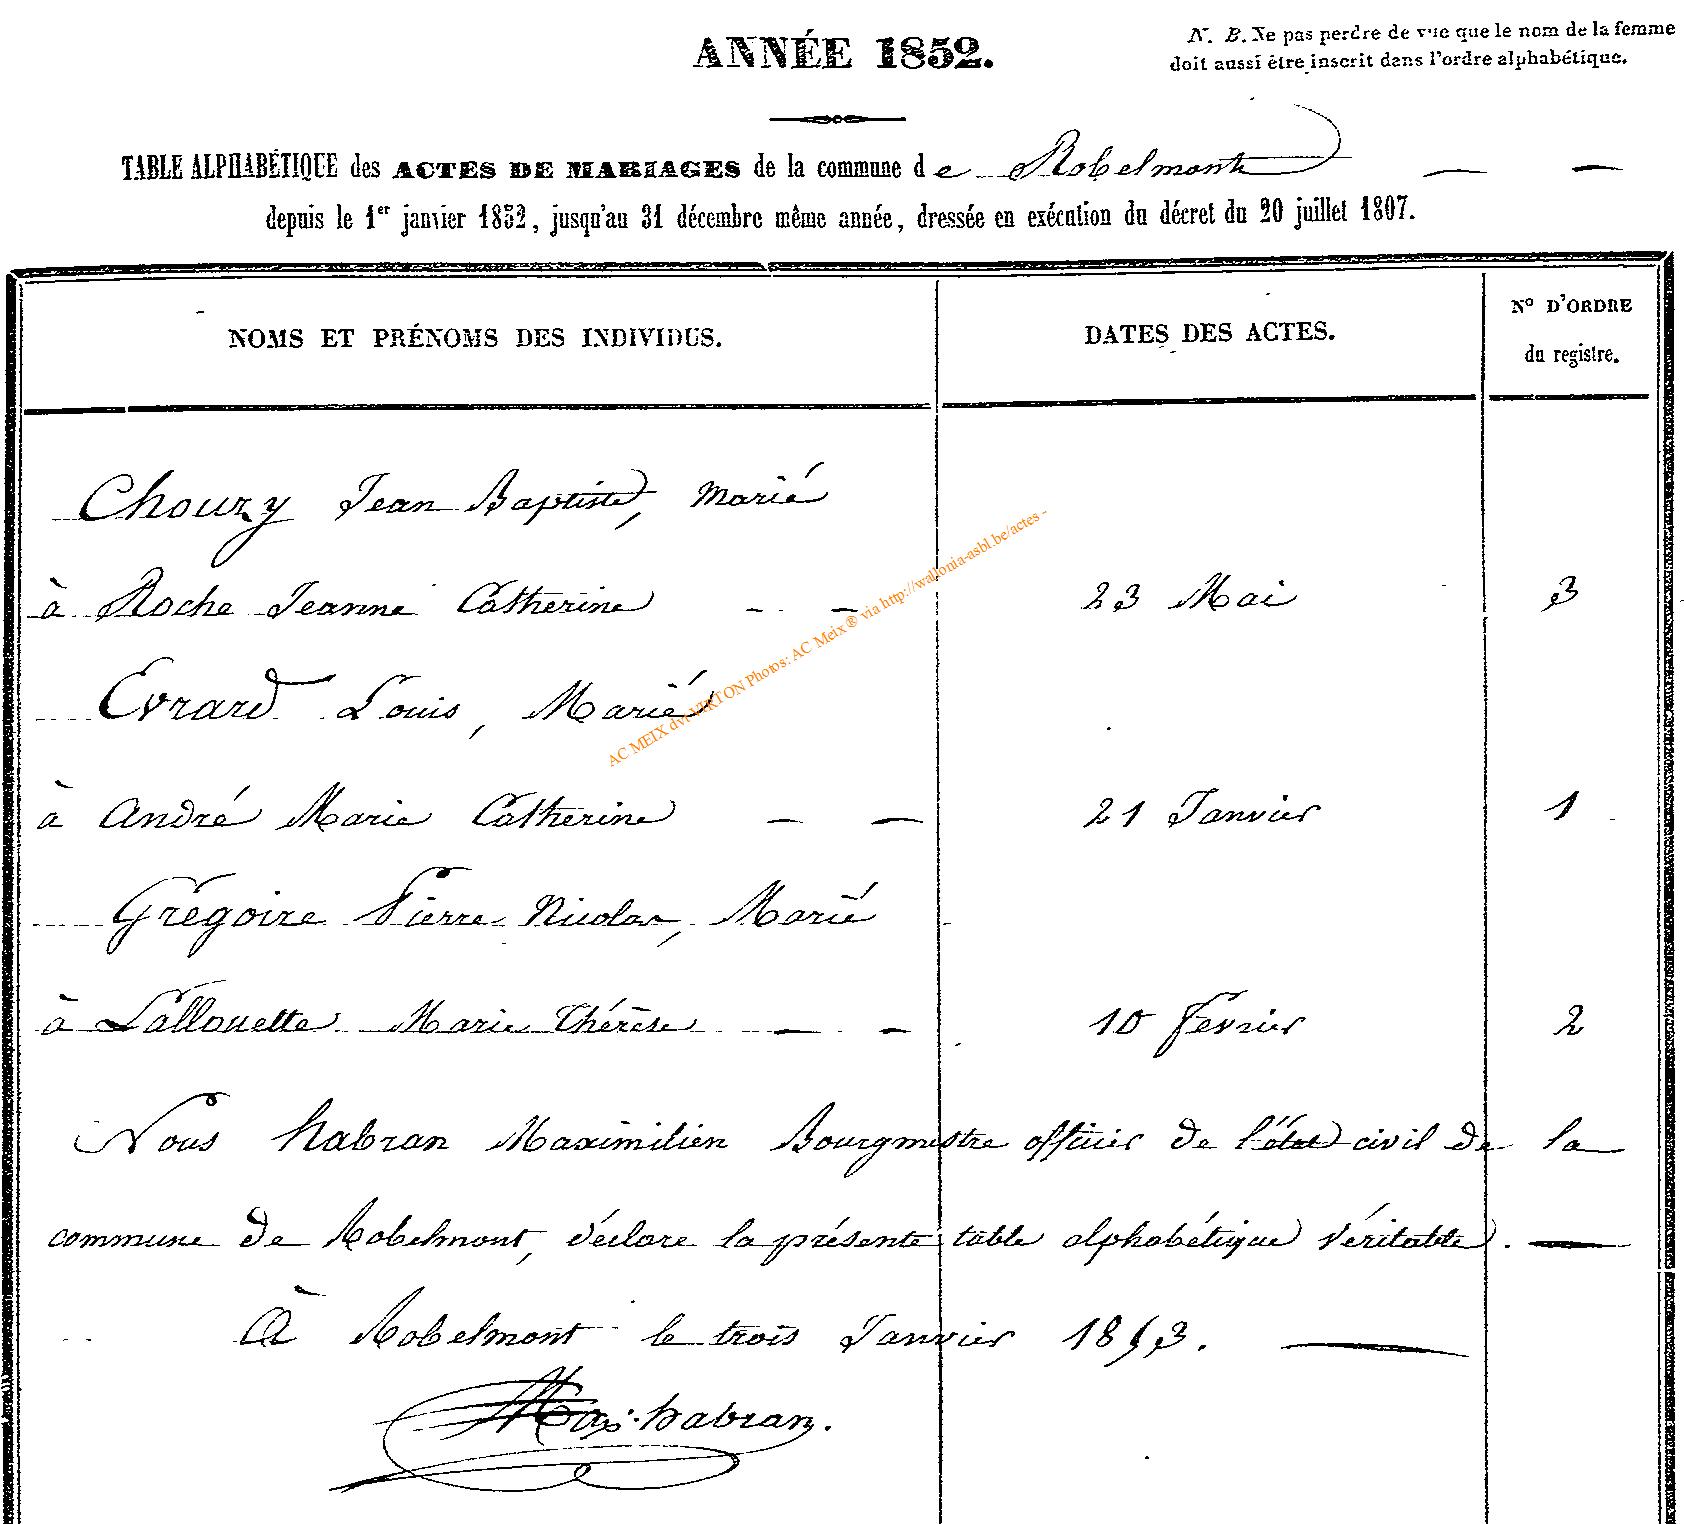 ANNÉE 1852.
N. B. Ne pas perdre de vue que le nom de la femme
doit aussi être inscrit dans l'ordre alphabétique.
TABLE ALPHABÉTIQUE des ACTES DE MARIAGES de la commune de Robelmont
depuis le 1er janvier 1852, jusqu'au 31 décembre même année, dressée en exécution du décret du 20 juillet 1807.
NOMS ET PRÉNOMS DES INDIVIDUS. DATES DES ACTES. N° D'ORDRE
du registre.
Chourzy Jean Baptiste, Marié
à Roche Jeanne Catherine - - 23 Mai 3
Evrard Louis, Marié
à André Marie Catherine - - 21 Janvier 1
Grégoire Pierre Nicolas, Marié
à Lallouette Marie Thérèse - - 10 février 2
Nous habran Maximilien Bourgmestre officier de l'état civil de la
commune de Robelmont, déclare la présente table alphabétique véritable.
À Robelmont le trois Janvier 1853.
Max. habran.
AC MEIX dvt VIRTON Photos: AC Meix ® via http://wallonia-asbl.be/actes -